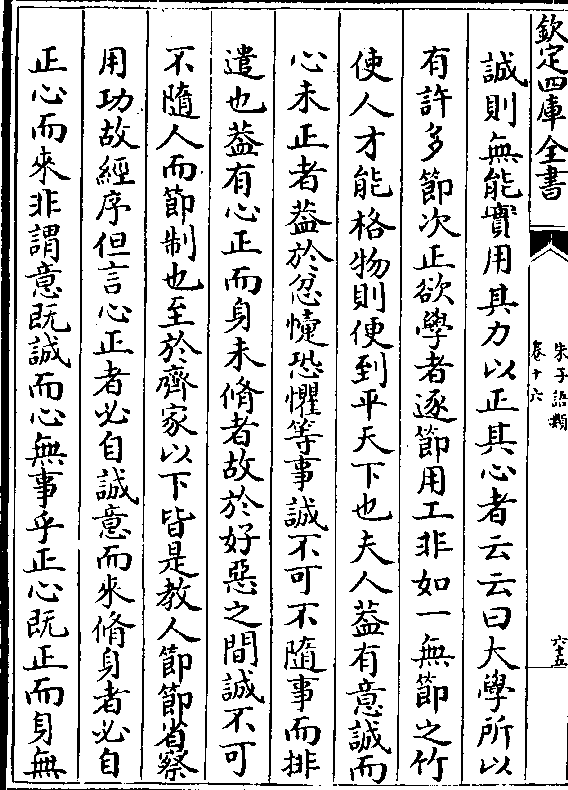 欽定四庫全書
朱子語類
卷十六
六五
誠則無能實用其力以正其心者云云曰大學所以
有許多節次正欲學者逐節用工非如一無節之竹
使人才能格物則便到平天下也夫人葢有意誠而
心未正者葢於忿懥恐懼等事誠不可不隨事而排
遣也葢有心正而身未脩者故於好惡之間誠不可
不隨人而節制也至於齊家以下皆是教人節節省察
用功故經序但言心正者必自誠意而來脩身者必自
正心而來非謂意既誠而心無事乎正心既正而身無